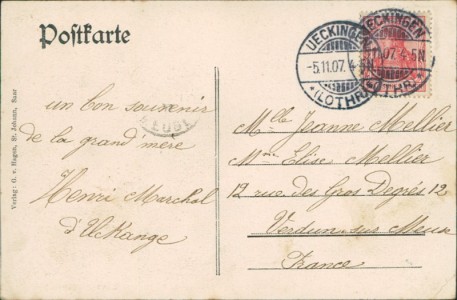 Postkarte
UECKINGEN
-5.11.07. 4-5N.
*(LOTHR)*
UECKINGEN
11.07. 4-5N
(LOTHR)*
un bon souvenir
de la grand mère
Henri Marchal
d'UcKange
Mlle Jeanne Mellier
Mme Elise Mellier
12 rue des Gros Degrés 12
Verdun sur Meuse
France
Verlag: G. v. Hagen, St. Johann, Saar